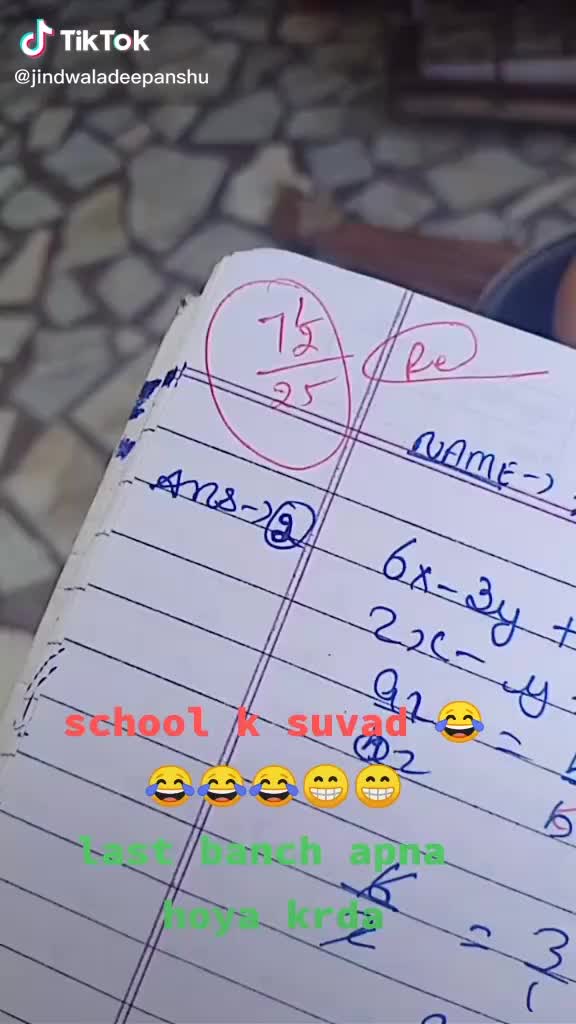 TikTok
@jindwaladeepanshu
7 1/2
25
Re
NAME→
Ans→ ②
6x - 3y +
2x - y
a1 =
a2
b
school k suvad 😂
😂😂😂😁😁
last banch apna
hoya krda
6
= 3
1